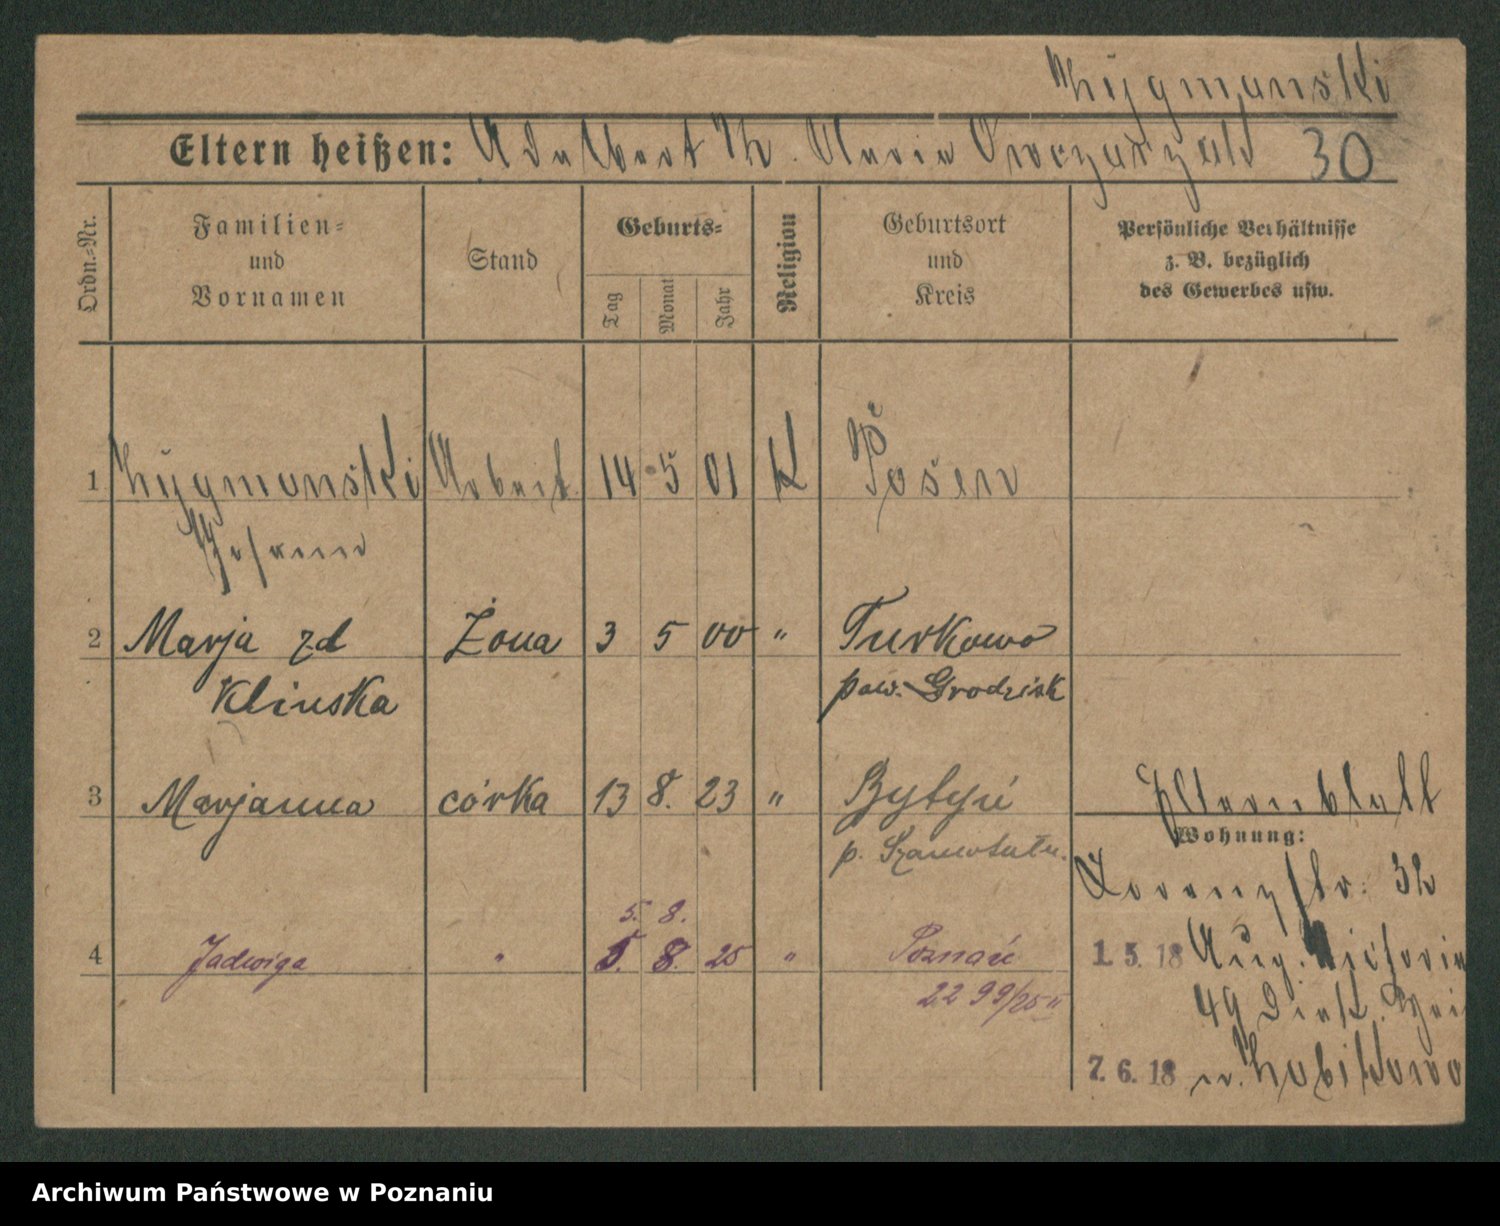 Zygmanski
Eltern heißen: Adalbert Z. Maria 30
Ordn.-Nr.
Familien- und Vornamen
Stand
Geburts-
Tag Monat Jahr
Religion
Geburtsort und Kreis
Persönliche Verhältnisse z. B. bezüglich des Gewerbes usw.
1 Zygmanski Arbeit 14 5 01 K Posen
Johann
2 Marja zd Żona 3 5 00 " Turkowo
Klinska pow. Grodzisk
3 Marjanna córka 13 8. 23 " Bytyń
p. Szamotuły.
Elternblatt
Wohnung:
Lorenzstr. 32
5. 8.
4 Jadwiga " 5. 8. 25 " Poznań
2299/25 II
1. 5. 18 Aug. Victoria
49
7. 6. 18 n.